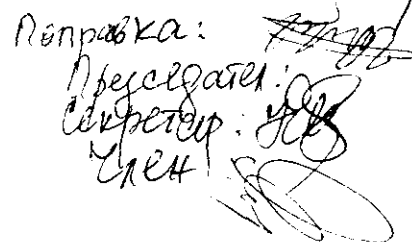 Поправка:
Председател:
Секретар:
Член